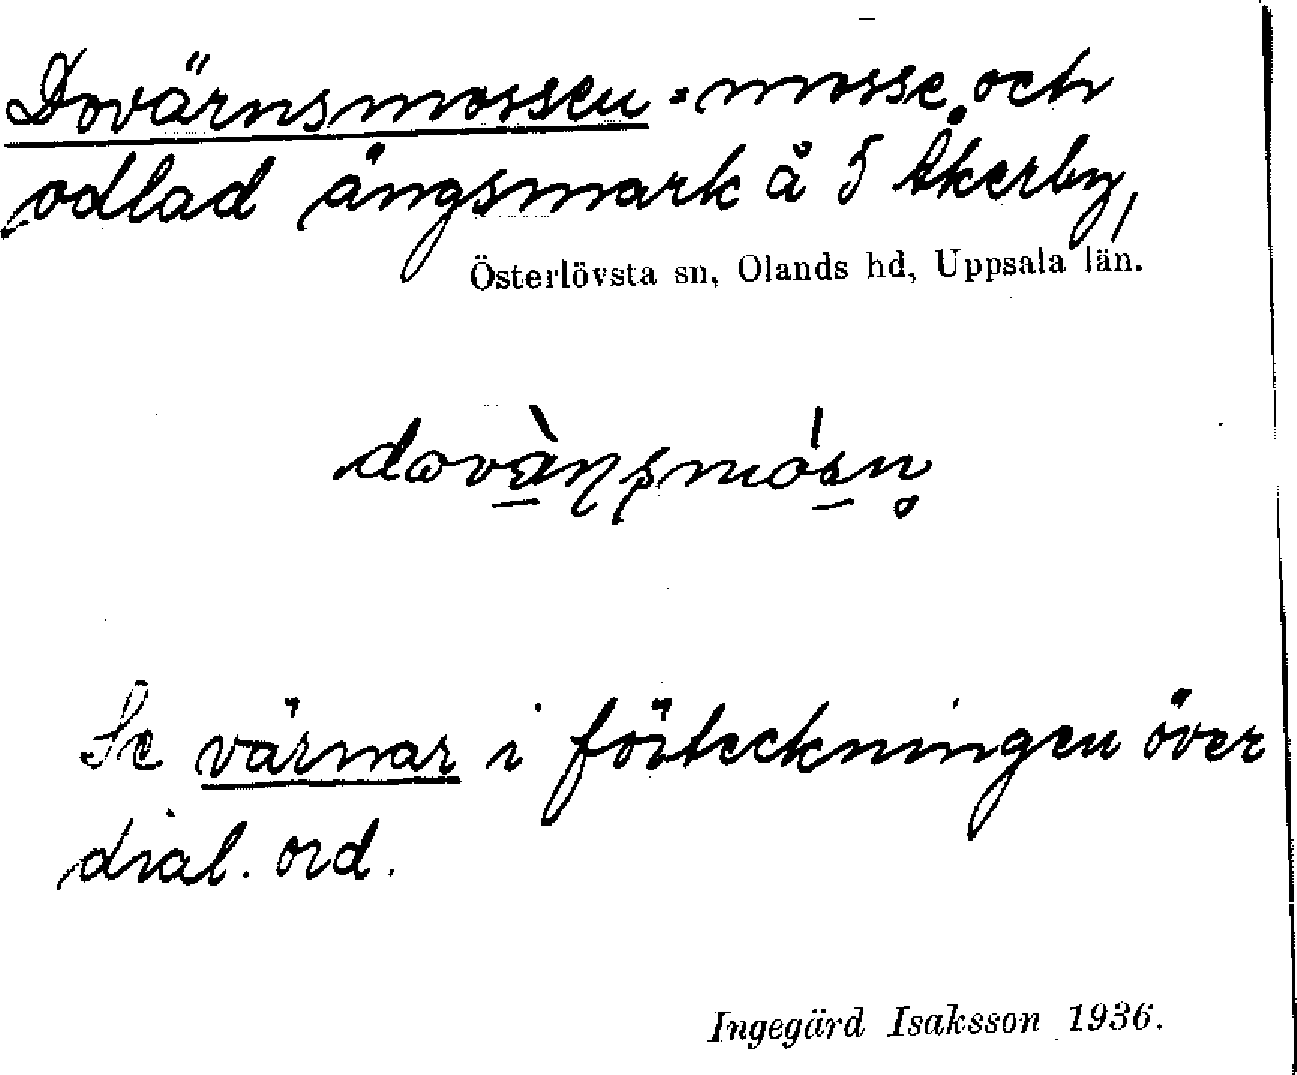 Dovärnsmossen = mosse och
odlad ängsmark å 5 Åkerby,
Österlövsta sn, Olands hd, Uppsala län.
Se värnar i förteckningen över
dial. ord.
Ingegärd Isaksson 1936.